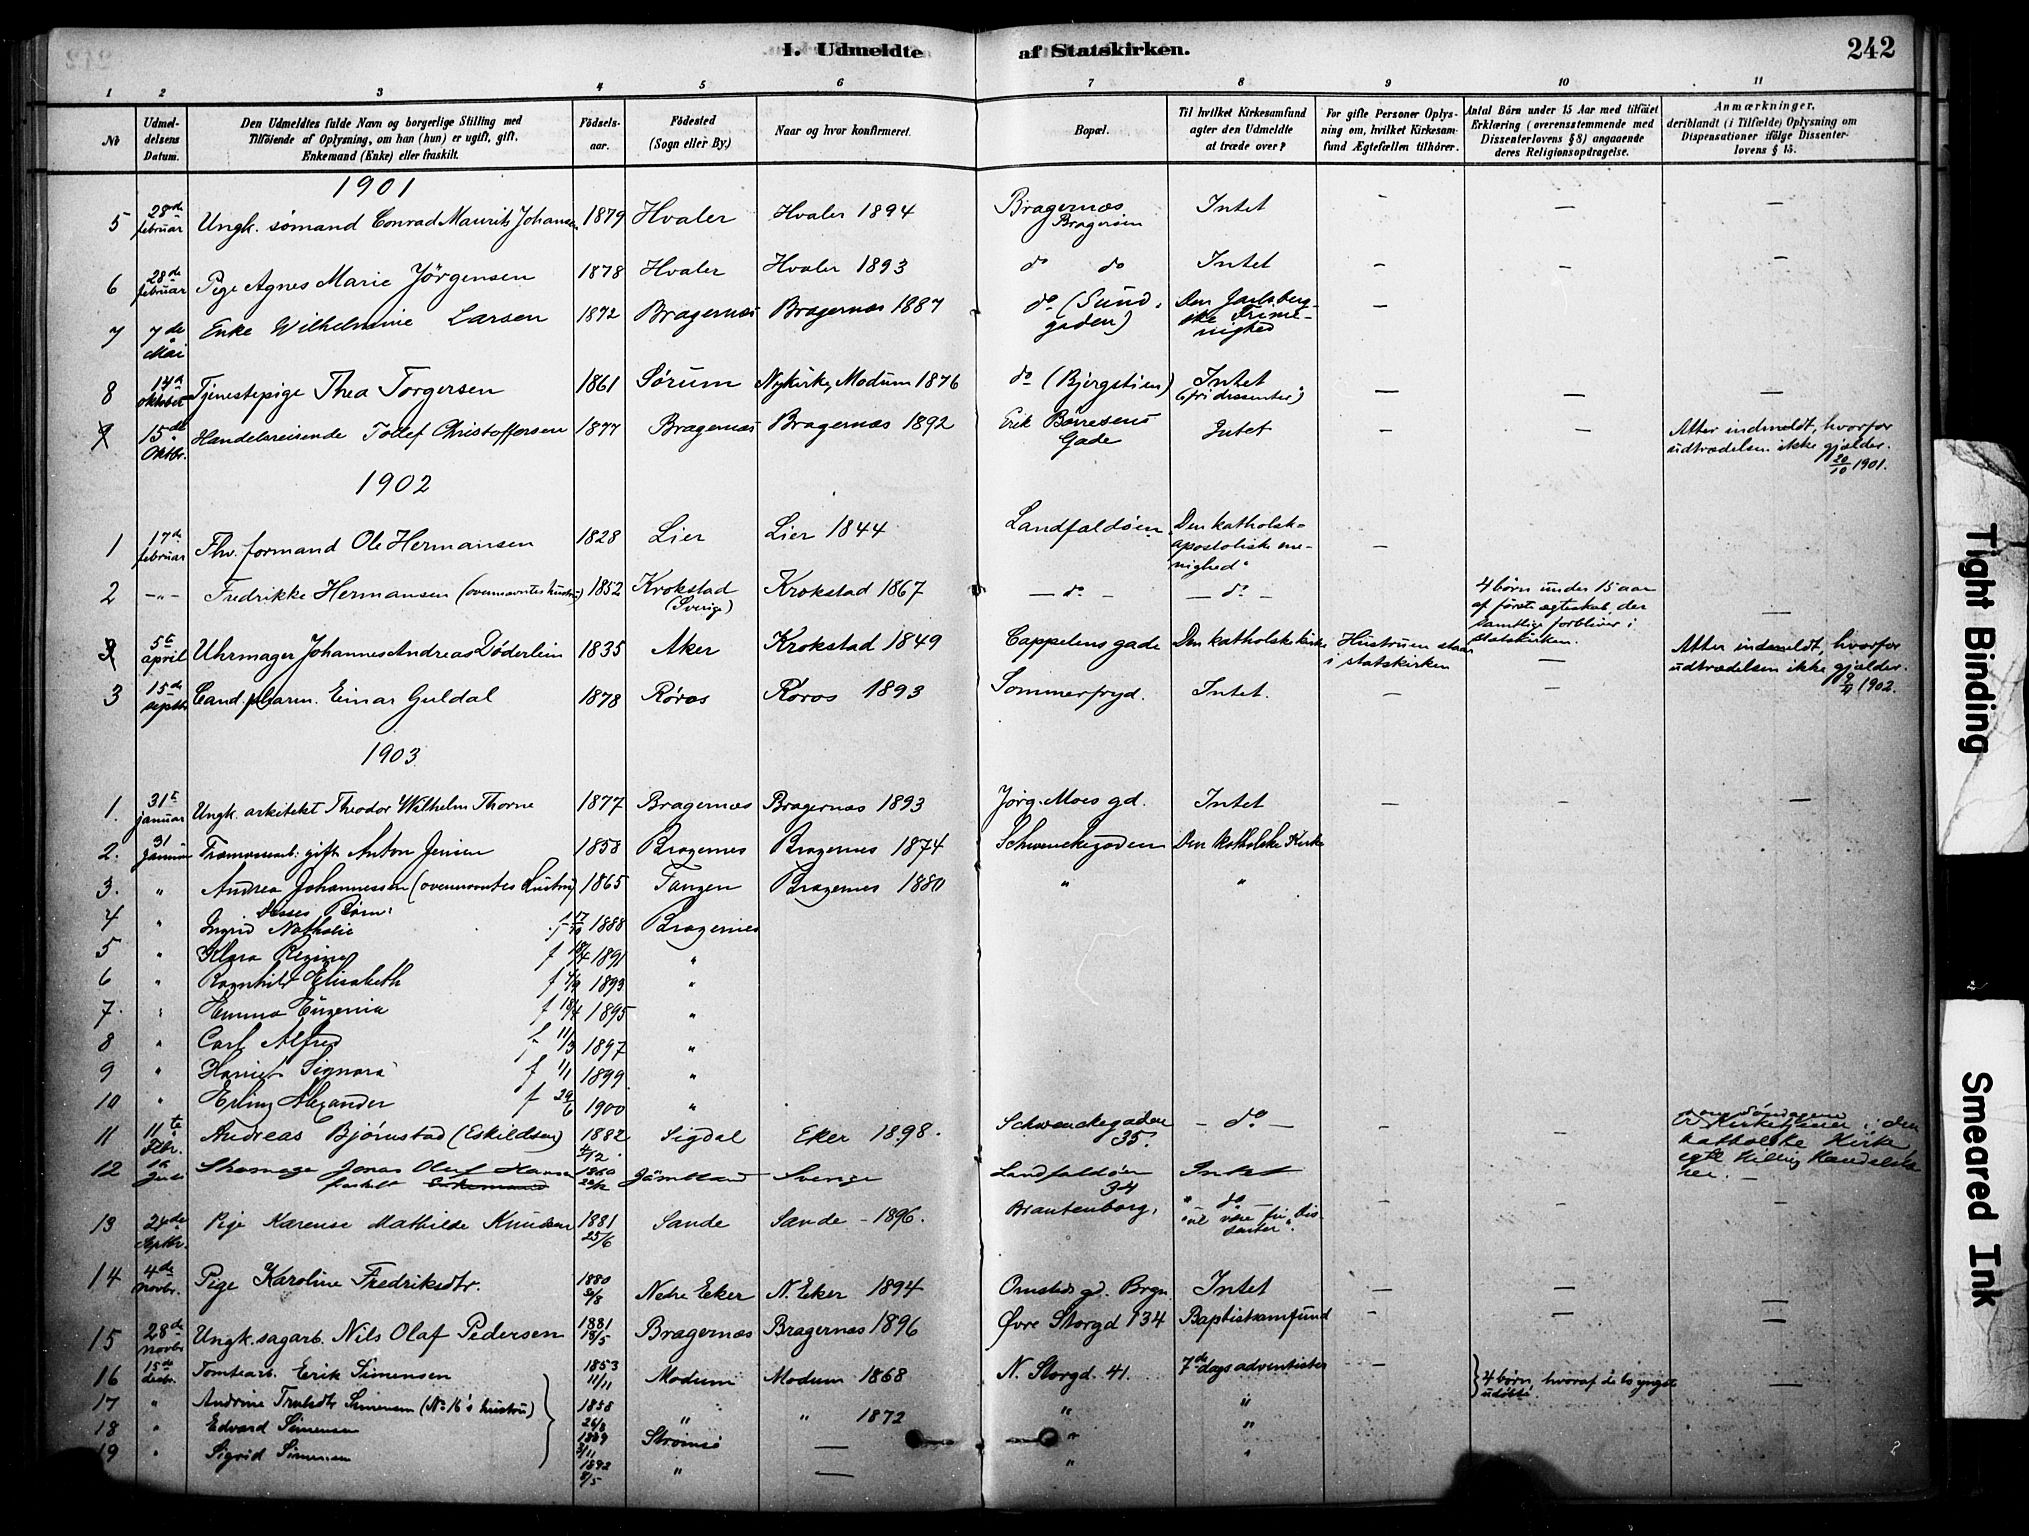 I. Udmeldte af Statskirken. 242
1 2 3 4 5 6 7 8 9 10 11
No Udmel-delsens Datum. Den Udmeldtes fulde Navn og borgerlige Stilling med Tilföiende af Oplysning, om han (hun) er ugift, gift, Enkemand (Enke) eller fraskilt. Födsels-aar. Födested (Sogn eller By.) Naar og hvor konfirmeret. Bopæl. Til hvilket Kirkesamfund agter den Udmeldte at træde over? For gifte Personer Oplysning om, hvilket Kirkesamfund Ægtefællen tilhörer. Antal Börn under 15 Aar med tilföiet Erklæring (overensstemmende med Dissenterlovens § 8) angaaende deres Religionsopdragelse. Anmærkninger, deriblandt (i Tilfælde) Oplysning om Dispensationer ifölge Dissenterlovens § 15.
1901
5 28de februar Ungk. sømand Conrad Maurits Johansen 1879 Hvaler Hvaler 1894 Bragernæs Bragerøen Intet — — —
6 28de februar Pige Agnes Marie Jörgensen 1878 Hvaler Hvaler 1893 do do Intet — — —
7 7de Mai Enke Wilhelmine Larsen 1872 Bragernæs Bragernæs 1887 do (Sund-gaden) Den Jarlsbergske Frime-nighed —
8 14de oktober Tjenestepige Thea Torgersen 1861 Sørum Nykirke, Modum 1876 do (Bjergstien) Intet (fri dissenter) — — —
9 15de Oktbr. Handelsreisende Todlef Christoffersen 1877 Bragernæs Bragernæs 1892 Erik Børresens Gade Intet — — Atter indmeldt, hvorfor udtrædelsen ikke gjælder. 20/10 1901.
1902
1 17de februar Fhv. formand Ole Hermansen 1828 Lier Lier 1844 Landfaldøen Den katholsk-apostoliske menighed —
2 —"— Fredrikke Hermansen (ovennævntes hustru) 1852 Krokstad (Sverige) Krokstad 1867 — do — — do — 4 børn under 15 aar af første ægteskab, der samtlige forbliver i statskirken. —
3 5te april Uhrmager Johannes Andreas Döderlein 1835 Aker Krokstad 1849 Cappelens gade Den katholske kirke Hustruen staar i statskirken — Atter indmeldt, hvorfor udtrædelsen ikke gjælder. 1902.
3 15de septbr Cand. pharm. Einar Guldal 1878 Røros Røros 1893 Sommerfryd. Intet. — —
1903
1. 31te januar Ungk. arkitekt Theodor Wilhelm Thorne 1877 Bragernæs Bragernæs 1893 Jörg. Moes gd. Intet — — —
2. 31 Januar gift Anton Jensen 1858 Bragernes Bragernes 1874 Schwenckegaden Den katholske Kirke
3. " Andrea Johannessen (ovennævntes Hustru) 1865 Tangen Bragernes 1880 " "
Disses Børn:
4 " Ingrid Nathalie f 17/10 1888 Bragernes
5 " Klara Regine f 18/4 1891 "
6 " Ragnhild Elisabeth f 4/9 1893 "
7. " Emma Eugenia f 18/4 1895 "
8 " Carl Alfred f 11/3 1897 "
9 " Harriet Signora f 1/1 1899 "
10 " Erling Alexander f 29/6 1900 "
11 11te Febr. Andreas Bjørnstad (Eskildsen) 1882 4/12 Sigdal Eker 1898. Schwenckegaden 35. — do — — Kirketjener i den katholske Kirke
12 Skomager Jonas Oluf Hansen fraskilt Enkemand 1860 Jämtland Sverige Landfaldøen 34 Intet
13 24de Septbr. Pige Karense Mathilde Knudsen 1881 25/6 Sande Sande — 1896. Brantenborg. " do — vil være fri Dissenter". — — —
14 4de novbr. Pige Karoline Fredriksdtr. 1880 6/8 Nedre Eker N. Eker 1894 Omsteds gd. Brgn Intet — — —
15 28de novbr Ungk. sagarb. Nils Olaf Pedersen 1881 18/5 Bragernæs Bragernæs 1896 Øvre Storgd 134 Baptistsamfund — — —
16 15de decbr. Tomtearb. Erik Simensen 1853 11/11 Modum Modum 1868 N. Storgd. 41. 7de dags adventister — 4 børn, hvoraf de to yngste udøbte. —
17 " Andrine Trulsdtr Simensen (No 16's hustru) 1858 26/8 " " 1872 " "
18 " Edvard Simensen 1889 3/11 Strømsø — " "
19 " Sigrid Simensen 1892 8/5 " — " "
Tight Binding
Smeared Ink